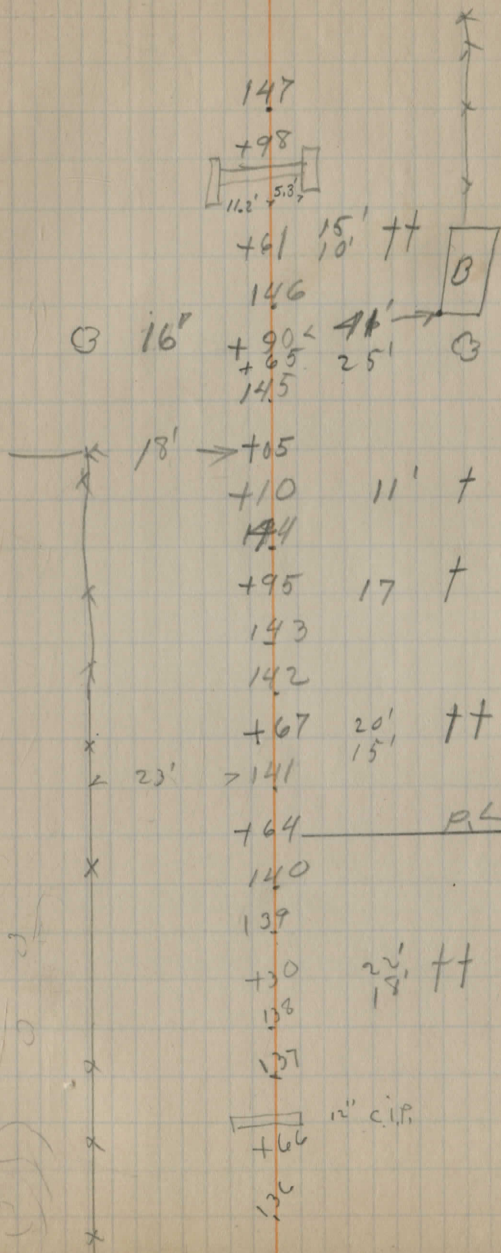 147
+98
11.2' 5.3'
+61 15' ††
10'
146
B
16" +90 41'
+65 25'
145
18' +05
+10 11' †
144
+95 17 †
143
142
+67 20' ††
15'
23' 141
+64 P.L
140
139
+30 22' ††
18'
138
137
12" C.I.P.
+66
136